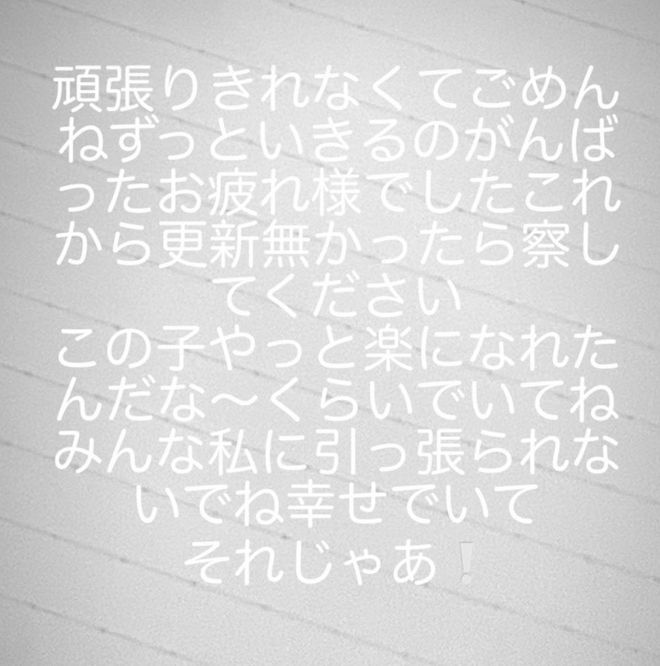 頑張りきれなくてごめん
ねずっといきるのがんば
ったお疲れ様でしたこれ
から更新無かったら察し
てください
この子やっと楽になれた
んだな〜くらいでいてね
みんな私に引っ張られな
いでね幸せでいて
それじゃあ❕